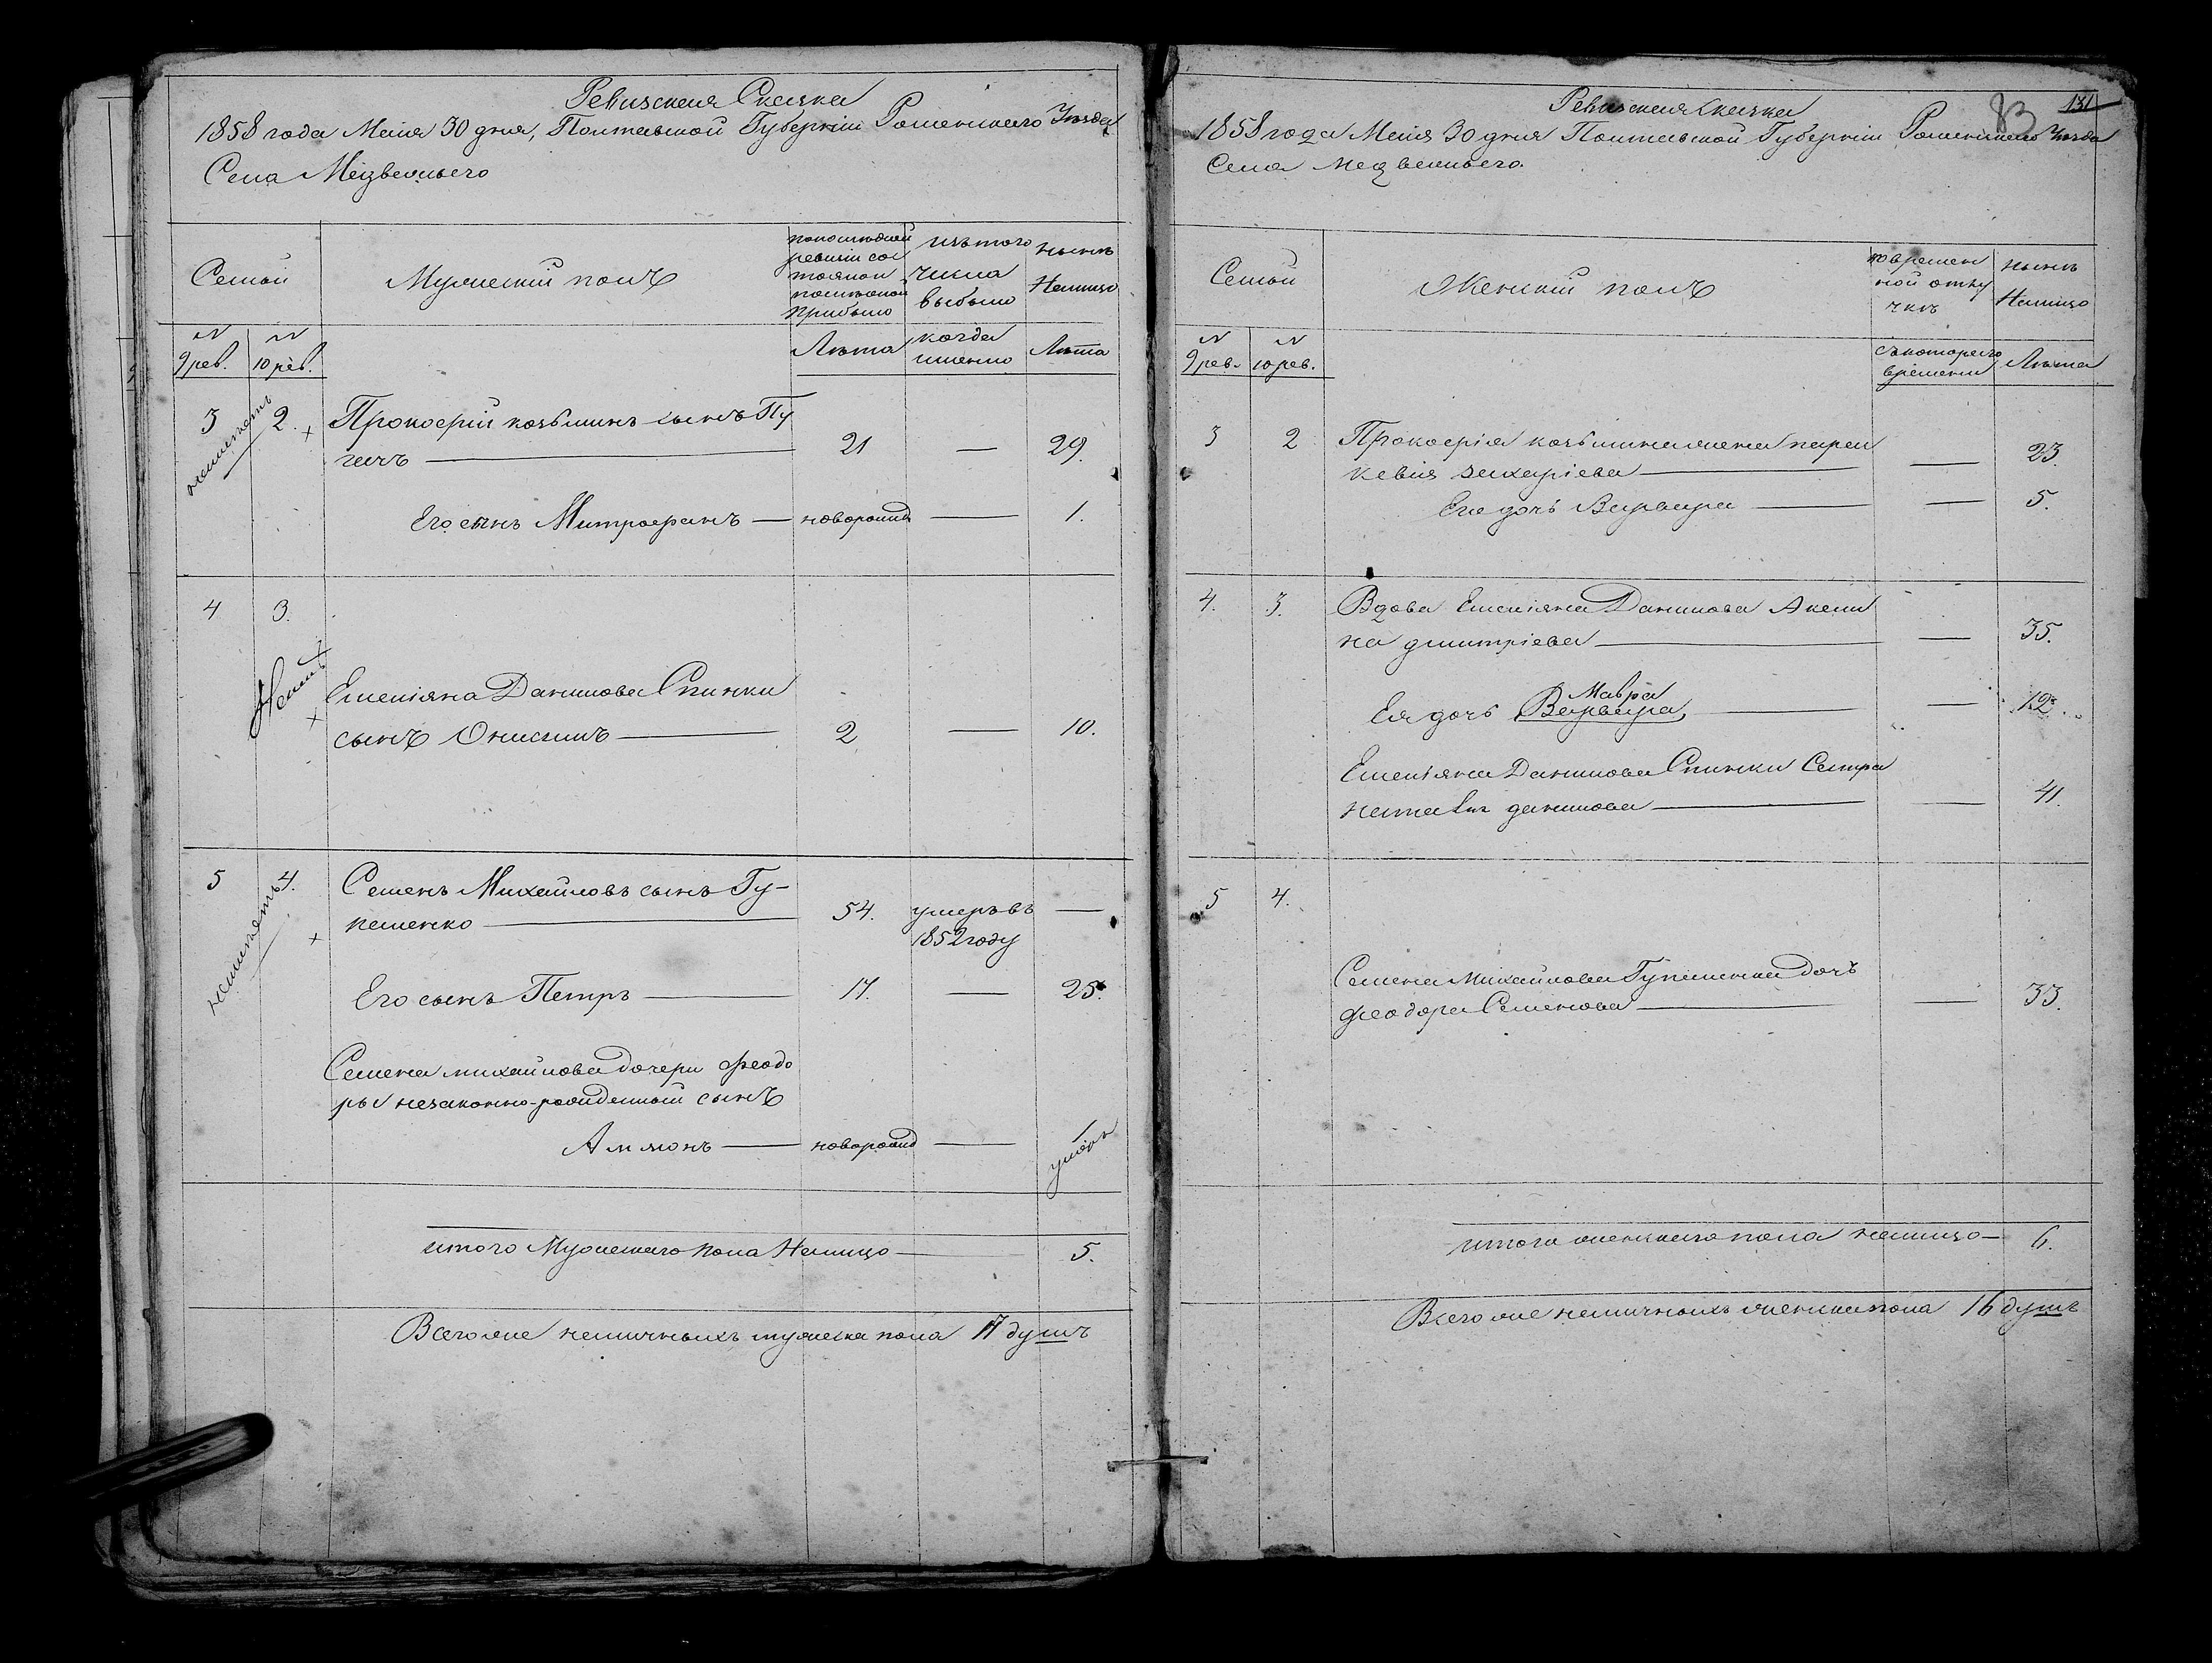 Ревизская Сказка
1858 года Маія 30 дня, Полтавской Губерніи Роменского Уезда
Села Медвежьего
Семьи
Мужескій полъ
по последней
ревизіи сос
тояло и
после оной
прибыло
изъ того
числа
выбыло
ныне
Налицо
N
9 рев.
N
10 рев.
Лета
когда
именно
Лета
3
2.
Прокофій козьминъ сынъ Пу
гачъ
21
—
29.
Его сынъ Митрофанъ — новорожд — 1.
4
3.
Емеліяна Данилова Спинки
сынъ Онисимъ
2
—
10.
5
4.
Семенъ Михайловъ сынъ Гу-
паленко
54.
умеръ въ
1852 году
—
Его сынъ Петръ
17.
—
25.
Семена михайлова дочери Феодо
ры незаконно-рожденный сынъ
Аммонъ — новорожд —
1
умеръ
итого Мужескаго пола Налицо — 5.
Всего же наличныхъ мужеска пола 17 душъ
131
83
Ревизская Сказка
1858 года Маія 30 дня Полтавской Губерніи Роменского Уезда
Села медвежьего.
Семьи
Женскій полъ
во времен
ной отлу
чке
ныне
Налицо
N
9 рев.
N
10 рев.
съ котораго
времени
Лета
3
2
Прокофія козьмина жена парас
кевія захаріева
—
23.
Его дочь Варвара — — 5.
4.
3.
Вдова Емеліяна Данилова Акели
на дмитріева
—
35.
Мавра
Ея дочь Варвара — — 12.
Емеліяна Данилова Спинки Сестра
наталія данилова
—
41.
5
4.
Семена Михайлова Гупаленка дочь
феодора Семенова
—
33.
итого женскаго пола налицо — 6.
Всего же наличныхъ женска пола 16 душъ